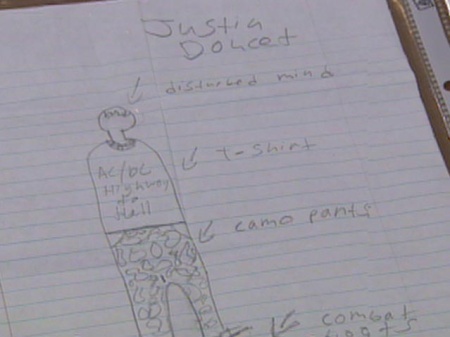 Justin
Doucet
disturbed mind
t-shirt
AC/DC
Highway
to
Hell
camo pants
combat
boots